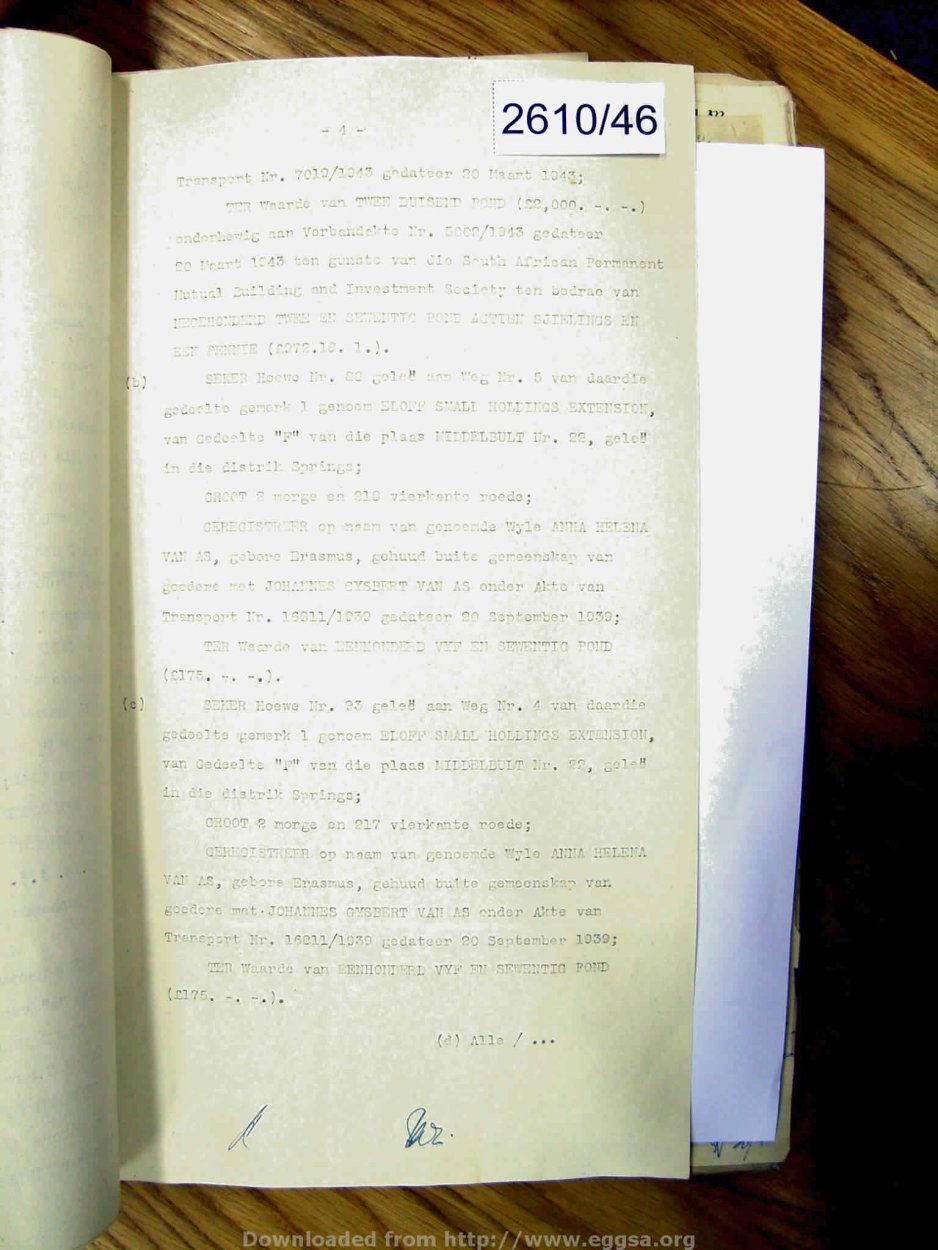 - 4 -
2610/46
Transport Nr. 7019/1943 gedateer 20 Maart 1943;
TER Waarde van TWEE DUISEND POND (£2,000. -. -.)
onderhewig aan Verbandakte Nr. 5009/1943 gedateer
20 Maart 1943 ten gunste van die South African Permanent
Mutual Building and Investment Society ten bedrae van
NEGEHONDERD TWEE EN SEWENTIG POND AGTIEN SJIELINGS EN
EEN PENNIE (£972.18. 1.).
(b) SEKER Hoewe Nr. geleë aan Weg Nr. 5 van daardie
gedeelte gemerk 1 genoem ELOFF SMALL HOLDINGS EXTENSION,
van Gedeelte "F" van die plaas MIDDELBULT Nr. 22, geleë
in die distrik Springs;
GROOT 2 morge en 218 vierkante roede;
GEREGISTREER op naam van genoemde Wyle ANNA HELENA
VAN AS, gebore Erasmus, gehuud buite gemeenskap van
goedere met JOHANNES GYSBERT VAN AS onder Akte van
Transport Nr. 16811/1939 gedateer 20 September 1939;
TER Waarde van EENHONDERD VYF EN SEWENTIG POND
(£175. -. -.).
(c) SEKER Hoewe Nr. 93 geleë aan Weg Nr. 4 van daardie
gedeelte gemerk 1 genoem ELOFF SMALL HOLDINGS EXTENSION,
van Gedeelte "F" van die plaas MIDDELBULT Nr. 22, geleë
in die distrik Springs;
GROOT 2 morge en 217 vierkante roede;
GEREGISTREER op naam van genoemde Wyle ANNA HELENA
VAN AS, gebore Erasmus, gehuud buite gemeenskap van
goedere met JOHANNES GYSBERT VAN AS onder Akte van
Transport Nr. 16811/1939 gedateer 20 September 1939;
TER Waarde van EENHONDERD VYF EN SEWENTIG POND
(£175. -. -.).
(d) Alle / ...
Downloaded from http://www.eggsa.org